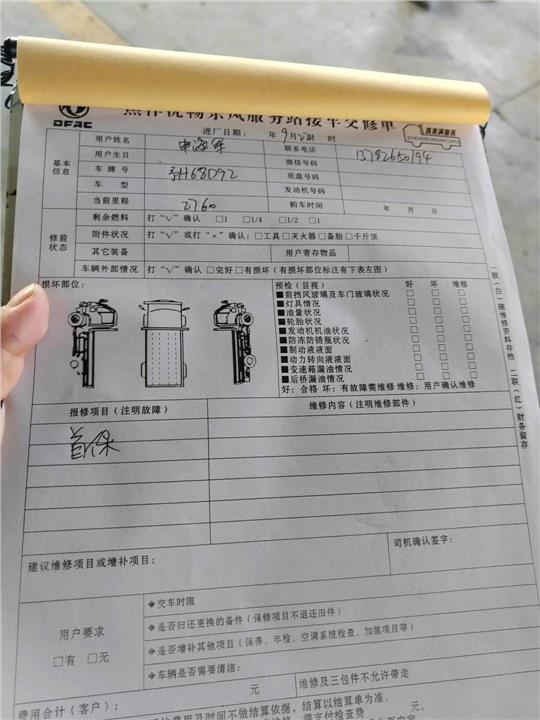 DFAC
焦作优畅东风服务站接车交修单
真章满服务
进厂日期： 年 9月2 日 时
基本信息
用户姓名
联系电话 13782650194
用户生日 微信号码
车牌号 H68D92 底盘号码
车型 发动机号码
当前里程 2760 购车时间 年 月 日
修前状态
剩余燃料 打“√”确认 □1 □1/4 □1/2 □1
附件状况 打“√”或打“×”确认：□工具□灭火器□备胎□千斤顶
其它装备 用户寄存物品
车辆外部情况 打“√”确认 □完好□有损坏（有损坏部位标注有下表左图）
损坏部位：
预检（目视） 好 坏 维修
■前挡风玻璃及车门玻璃状况 □ □ □
■灯具情况 □ □ □
■油量状况 □ □ □
■轮胎状况 □ □ □
■发动机机油状况 □ □ □
■防冻防锈瓶状况 □ □ □
■制动液液面 □ □ □
■动力转向液液面 □ □ □
■变速箱漏油情况 □ □ □
■后桥漏油情况 □ □ □
好：合格 坏：有故障需维修 维修：用户确认维修
报修项目（注明故障） 维修内容（注明维修部件）
首保
建议维修项目或增补项目： 司机确认签字：
用户要求
□有 □无
◆交车时限
◆是否归还更换的备件（保修项目不退还旧件）
◆是否增补其他项目（保养、年检、空调系统检查、加装项目等）
◆车辆是否需要清洁：
费用合计（客户）： 元 维修及三包件不允许带走
费用及时间不做结算依据，结算以结算单为准。
需支付检查费 元。
一联（白）随维修资料存档 二联（红）财务留存